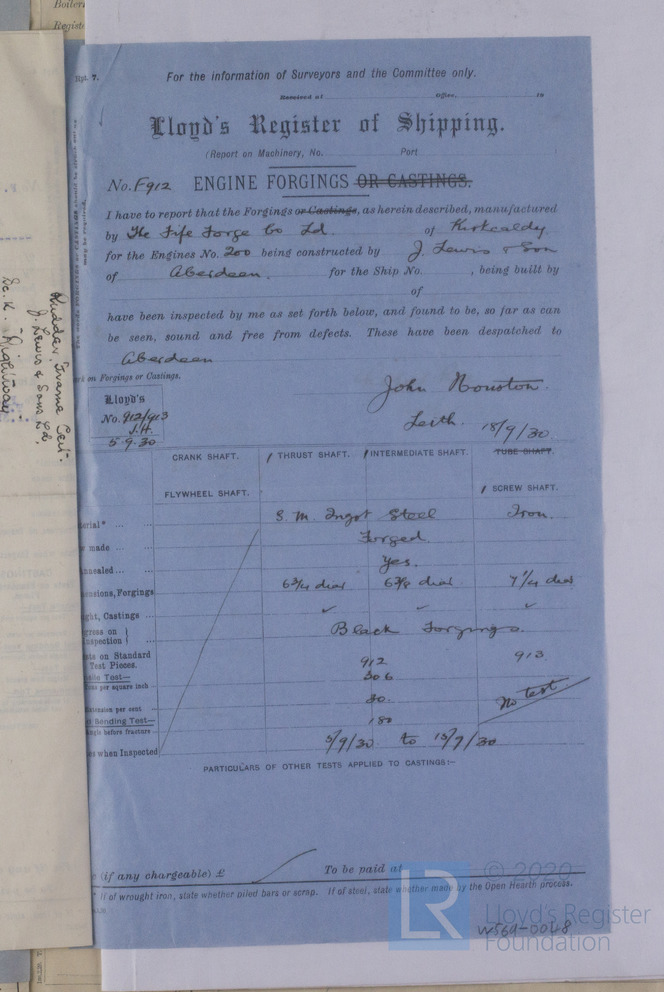 Boiler
Registe
Rpt. 7.
For the information of Surveyors and the Committee only.
Received at Office, 19
Lloyd's Register of Shipping.
(Report on Machinery, No. Port
No. F912 ENGINE FORGINGS OR CASTINGS.
I have to report that the Forgings or Castings, as herein described, manufactured
by The Fife Forge Co Ld of Kirkcaldy
for the Engines No. 200 being constructed by J. Lewis & Son
of Aberdeen. for the Ship No. , being built by
of
have been inspected by me as set forth below, and found to be, so far as can
be seen, sound and free from defects. These have been despatched to
Aberdeen
rk on Forgings or Castings.
John Houston.
Lloyd's
No. 912/913
J.H.
5.9.30
Leith. 18/9/30.
Rudder Frame Cert.
J Lewis & Sons Ld.
CRANK SHAFT. THRUST SHAFT. INTERMEDIATE SHAFT. TUBE SHAFT.
FLYWHEEL SHAFT. SCREW SHAFT.
terial* S. M. Ingot Steel Iron.
made Forged
nnealed Yes.
ensions, Forgings 6 3/4 diar 6 3/8 diar 7 1/4 diar
ght, Castings ✓ ✓ ✓
gress on
nspection Black Forgings.
ts on Standard
Test Pieces. 912 913
ile Test—
ons per square inch 30.6
xtension per cent 30. No test.
d Bending Test—
ngle before fracture 180
es when Inspected 5/9/30 to 15/9/30
PARTICULARS OF OTHER TESTS APPLIED TO CASTINGS:—
e (if any chargeable) £ To be paid at
* If of wrought iron, state whether piled bars or scrap. If of steel, state whether made by the Open Hearth process.
LR
© 2020
Lloyd's Register
Foundation
W569-0048